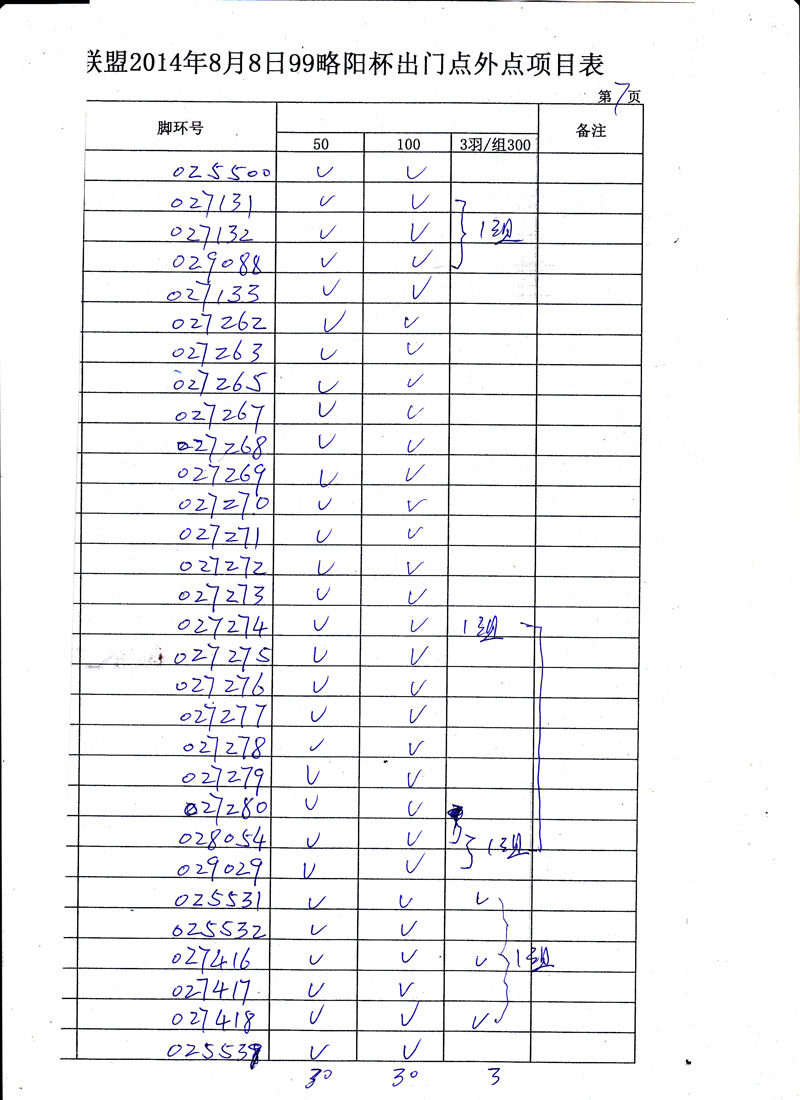 联盟2014年8月8日99略阳杯出门点外点项目表
第7页
脚环号 备注
50 100 3羽/组300
025500 ✓ ✓
027131 ✓ ✓
027132 ✓ ✓ 1组
029088 ✓ ✓
027133 ✓ ✓
027262 ✓ ✓
027263 ✓ ✓
027265 ✓ ✓
027267 ✓ ✓
027268 ✓ ✓
027269 ✓ ✓
027270 ✓ ✓
027271 ✓ ✓
027272 ✓ ✓
027273 ✓ ✓
027274 ✓ ✓ 1组
027275 ✓ ✓
027276 ✓ ✓
027277 ✓ ✓
027278 ✓ ✓
027279 ✓ ✓
027280 ✓ ✓
028054 ✓ ✓ 1组
029029 ✓ ✓
025531 ✓ ✓ ✓
025532 ✓ ✓
027416 ✓ ✓ ✓ 1组
027417 ✓ ✓
027418 ✓ ✓ ✓
✓ ✓
30 30 3